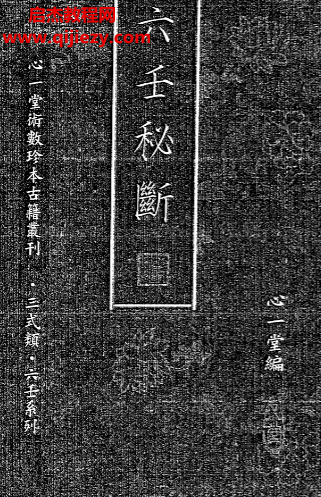 启杰教程网
www.qijiezy.com
六壬秘斷
心一堂術數珍本古籍叢刊 · 三式類 · 六壬系列
心一堂編